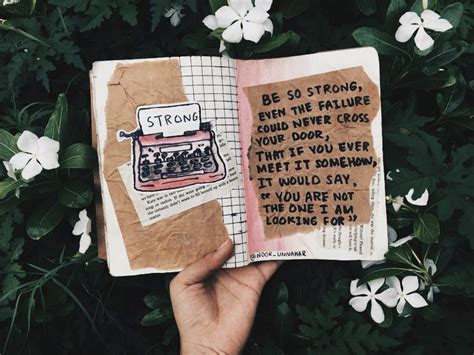 STRONG
BE SO STRONG,
EVEN THE FAILURE
COULD NEVER CROSS
YOUR DOOR,
THAT IF YOU EVER
MEET IT SOMEHOW,
IT WOULD SAY,
"YOU ARE NOT
THE ONE I AM
LOOKING FOR"
@NOOR_UNNAHAR